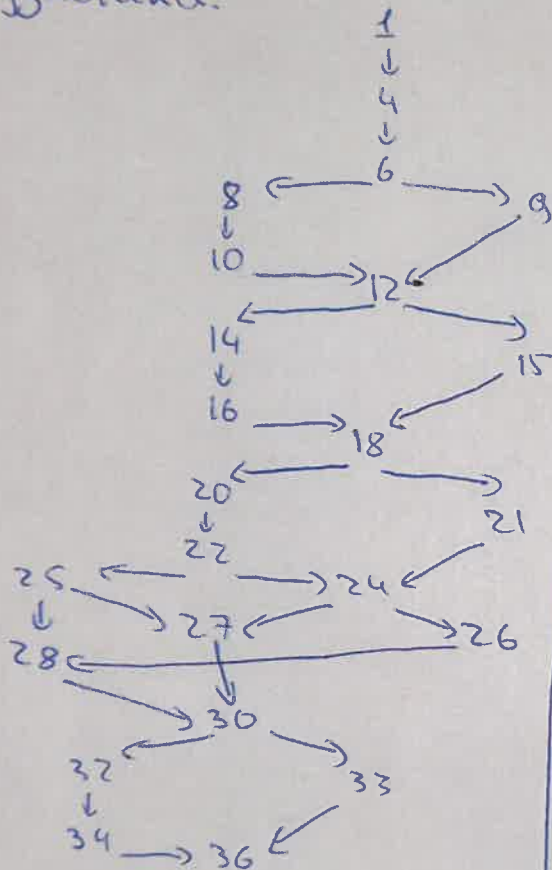 1
4
6
8 9
10
12
14
15
16
18
20
21
22
25 24
27 26
28
30
32
33
34
36